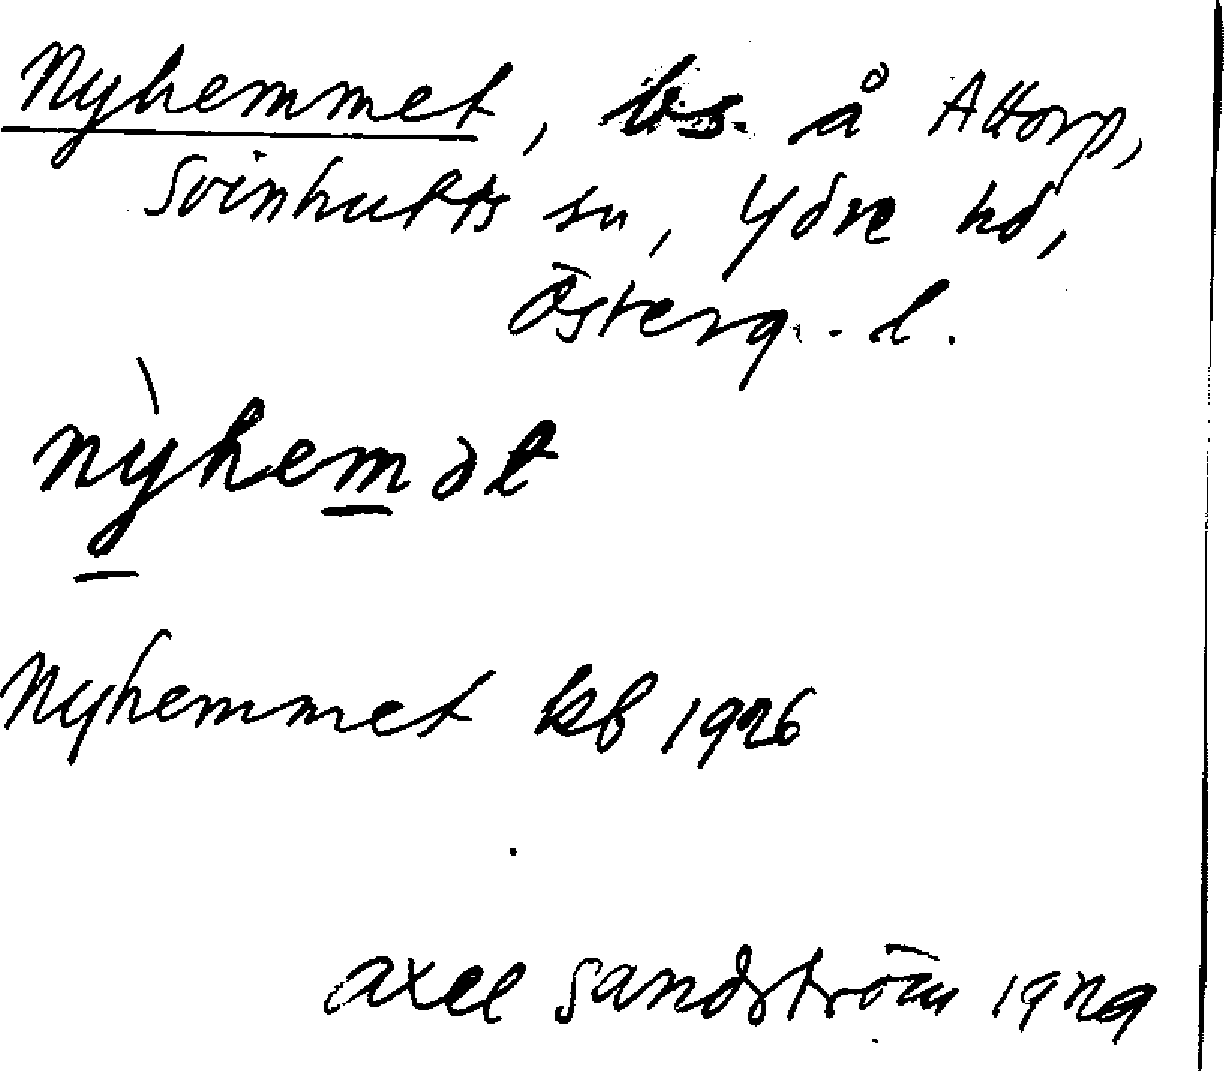 Nyhemmet, bs. å Attorp,
Svinhults sn, Ydre hd,
Österg. l.
nỳhemət
Nyhemmet kb 1926
Axel Sandström 1929